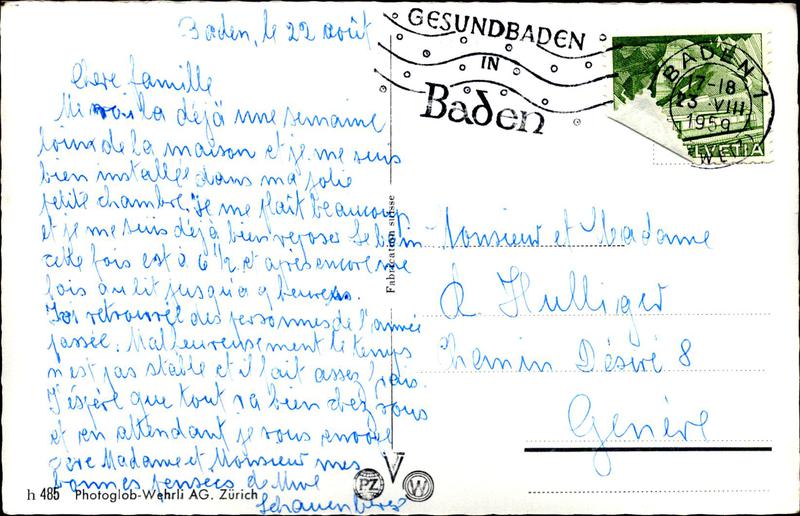 Baden, le 22 août
Chere famille
Me voila déjà une semaine
loin de la maison et je me suis
bien installée dans ma jolie
petite chambre. Je me plait beaucoup
et je me suis déjà bien reposer le bain
cette fois est à 6½ et apres encore une
fois au lit jusqu'à 9 heures.
J'ai retrouvée des personnes de l'année
passée. Malheureusement le temps
n'est pas stable et il fait assez frais.
J'éspére que tout va bien chez vous
et en attendant je vous envoie
chère Madame et Monsieur mes
bonnes pensées de Mme
Schauenberg
GESUNDBADEN
IN
Baden
BADEN 1
17-18
23. VIII
1959
HELVETIA
Fabrication suisse
Monsieur et Madame
A. Hulliger
Chemin Désiré 8
Genève
PZ
V
W
h 485 Photoglob-Wehrli AG. Zürich